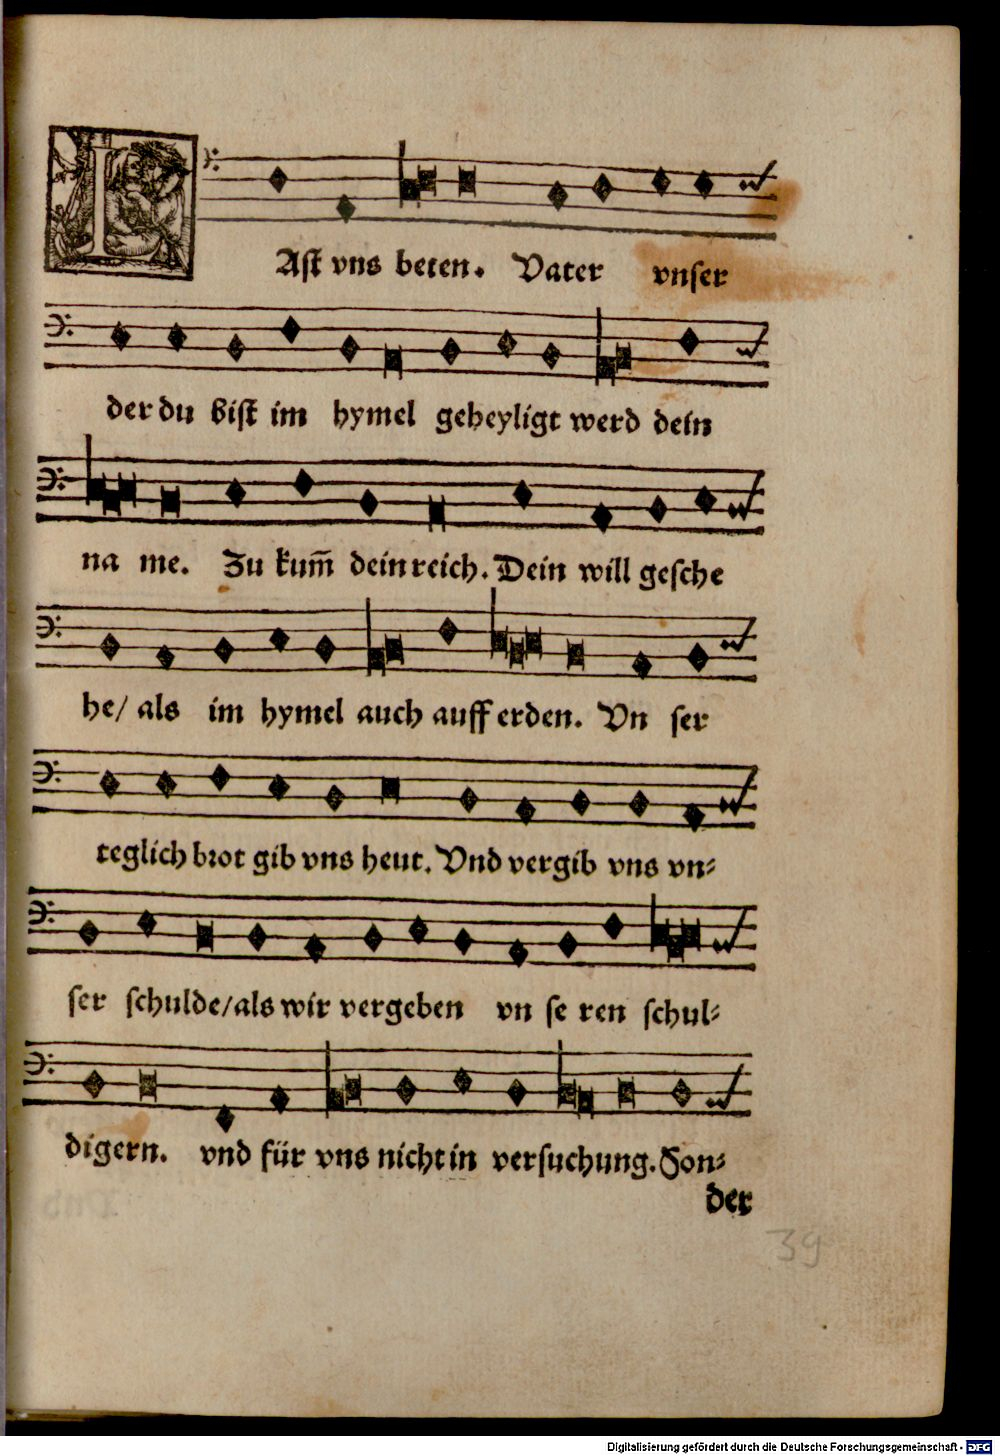 LAst vns beten. Vater vnser
der du bist im hymel geheyligt werd dein
na me. Zu kum̃ dein reich. Dein will gesche
he/ als im hymel auch auff erden. Vn ser
teglich brot gib vns heut. Vnd vergib vns vn⸗
ser schulde/als wir vergeben vn se ren schul⸗
digern. vnd für vns nicht in versuchung. Son⸗
der
39
Digitalisierung gefördert durch die Deutsche Forschungsgemeinschaft - DFG